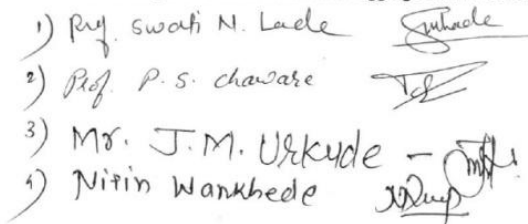 1) Prof. Swati N. Lade
2) Prof. P. S. chaware
3) Mr. J. M. Urkude -
4) Nitin Wankhede